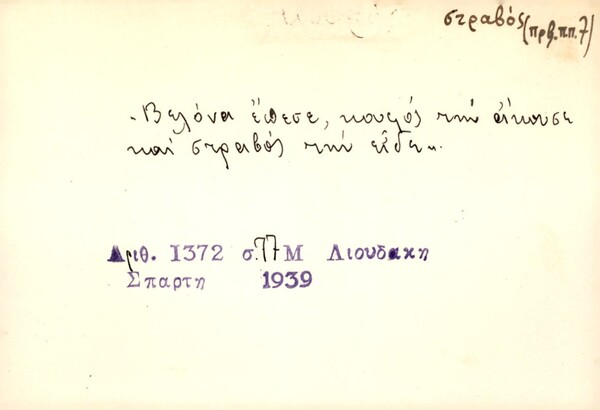 στραβός
(πρβ. π.π. 7)
„Βελόνα ἔπεσε, κουφός τήν ἄκουσε
καί στραβός τήν εἶδε".
Αριθ. 1372 σ. 77 Μ Λιουδακη
Σπαρτη 1939